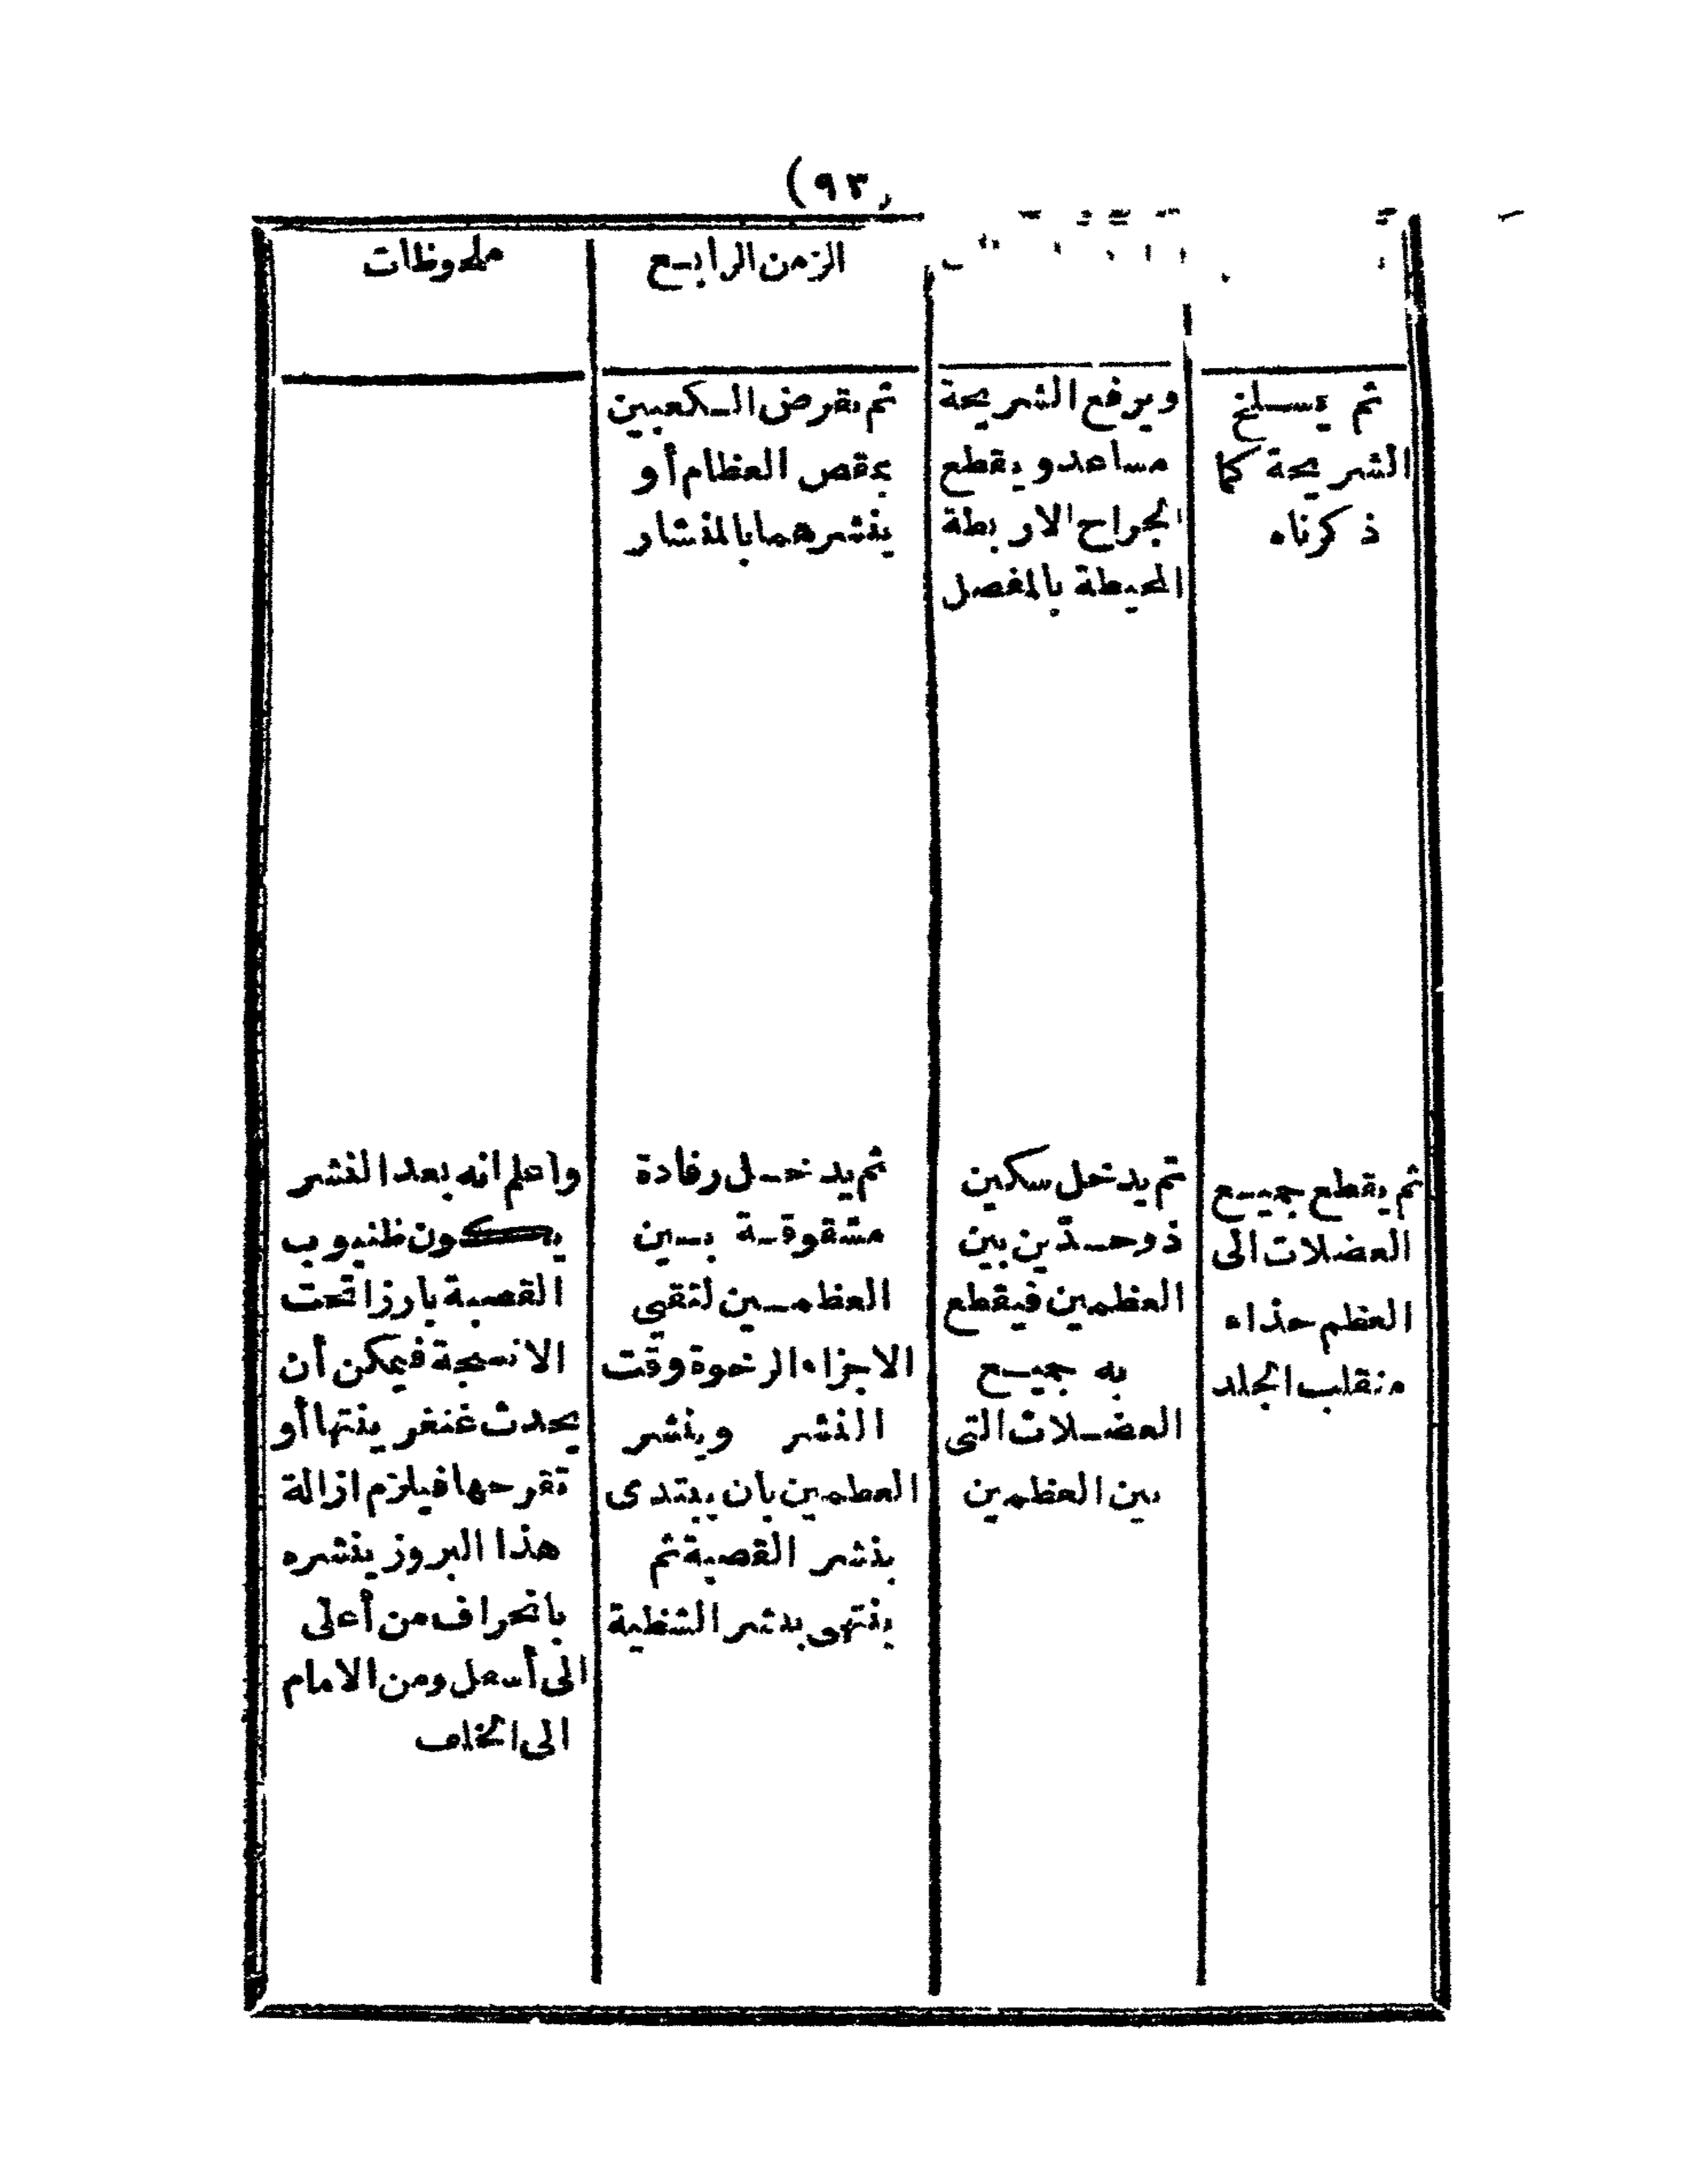 (٩٣)
الزمن الرابع
ملحوظات
ثم يسلخ
الشريحة كما
ذكرناه
ويرفع الشريحة
مساعد ويقطع
الجراح الاربطة
المحيطة بالمفصل
ثم يقرض الكعبين
بمقص العظام أو
ينشرهما بالمنشار
ثم يقطع جميع
العضلات الى
العظم حذاء
منقلب الجلد
ثم يدخل سكين
ذو حدّين بين
العظمين فيقطع
به جميع
العضلات التى
بين العظمين
ثم يدخل رفادة
مشقوقة بين
العظمين لتقى
الاجزاء الرخوة وقت
النشر وينشر
العظمين بان يبتدى
بنشر القصبة ثم
ينتهى بنشر الشظية
واعلم انه بعد النشر
يكون ظنبوب
القصبة بارزا تحت
الانسجة فيمكن أن
يحدث غنغرينتها أو
تقرحها فيلزم ازالة
هذا البروز بنشره
بانحراف من أعلى
الى أسفل ومن الامام
الى الخلف